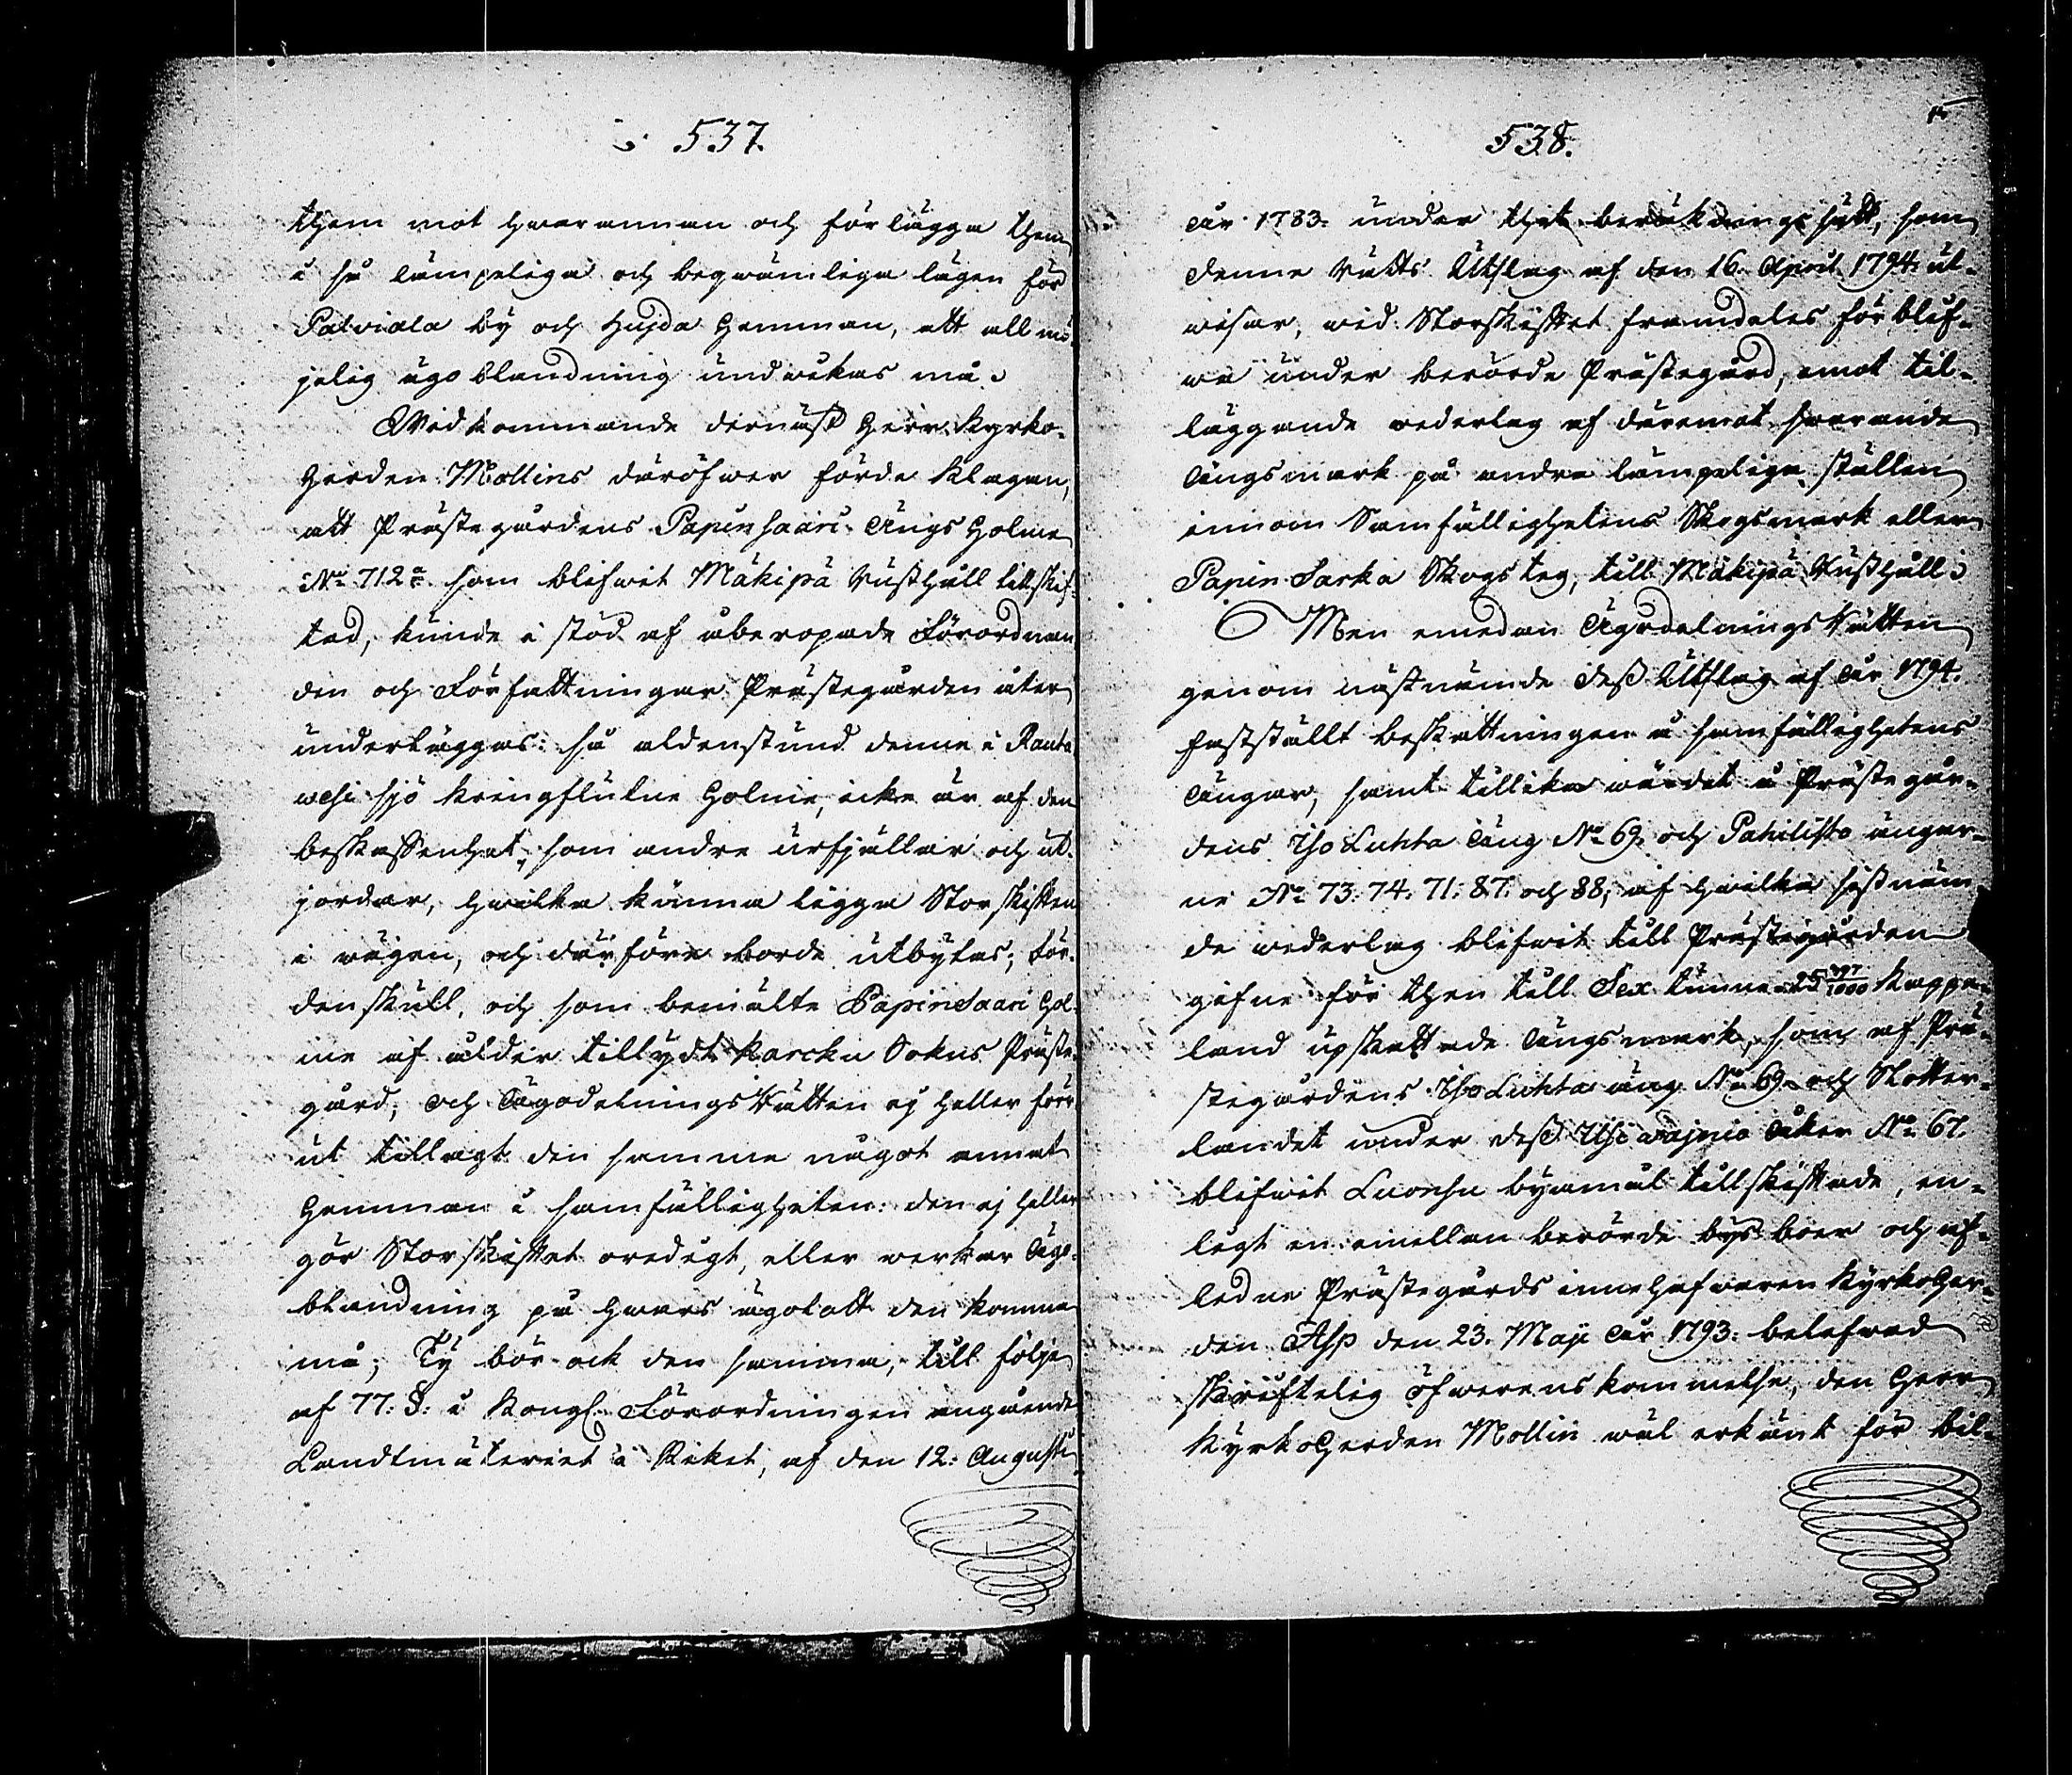 537.
them mot hwarannan och förlägga them
i så lämpeliga och beqwämliga lägen för
Palviala by och Hujda Hemman, att all mö-
jelig ägoblandning undwikas må.
Widkommande dernäst Herr Kyrko-
Herden Mollins däröfwer förde klagan,
att Prästegårdens Papinsaari Ängs Holme
No 712 som blifwit Mäkipä Rusthåll tillskif-
tad, kunde i stöd af åberopade Förordnan
den och Författningar Prästegården åter
underläggas: så aldenstund denne i Rauta
wesi sjö kringflutne Holme, icke är af den
beskaffenhet, som andre urfjällar och ut-
jordar, hwilka kunna ligga Storskiften
i wägen, och därföre borde utbytas; for-
denskull, och som bemälte Papinsaari Hol-
me af ålder tillydt Karcku Sokns Präste-
gård, och Ägodelnings Rätten ej heller förr
ut tillagt den samma något annat
Hemman i samfälligheten: den ej heller
gör Storskiftet oredigt, eller werkar Ägo-
blandning på hwars ägolott den komma
må; Ty bör ock den samma, till följe
af 77. §. i Kongl. Förordningen angående
Landtmäteriet i Riket, af den 12. Augusti
538.
år 1783. under thet beräknings sätt, som
denne Rätts Utslag af den 16. April 1794. ut-
wisar, wid Storskiftet framdeles förblif-
wa under berörde Prästegård, emot til-
läggande wederlag af däremot swarande
Ängsmark på andra lämpeliga ställen
innom Samfällighetens Skogsmark eller
Papin Sarka Skogs teg, till Mäkipä Rusthåll.
Men emedan Ägodelnings Rätten
genom nästnämde dess Utslag af år 1794.
fastställt beskattningen å samfällighetens
Ängar, samt tillika wärdet å Prästegår-
dens Iso Luhta äng No 69. och Pahilisto ängar-
ne No 73. 74. 71. 87. och 88; af hwilka sistnäm
de wederlag blifwit till Prästegården
gifne för then till Sex tunne 25 497/1000 Kappe-
land upskattade Ängsmark, som af Prä-
stegårdens Iso Luhta äng No 69. och Slotter-
landet under dess Usi wajnio åker No 67.
blifwit Luonsu byamål tillskiftade, en-
ligt en emellan berörde bys boer och af-
ledne Prästegårds innehafwaren Kyrko Her-
den Asp den 23. Maji år 1793. belefwad
skriftelig öfwerenskommelse, den Herr
Kyrko Herden Mollin wäl erkänt för bil-